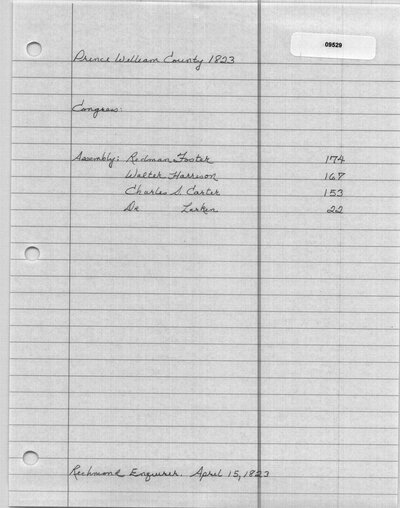 09529
Prince William County 1823
Congress:
Assembly: Redman Foster 174
Walter Harrison 167
Charles S. Carter 153
Dr Larkin 22
Richmond Enquirer. April 15, 1823